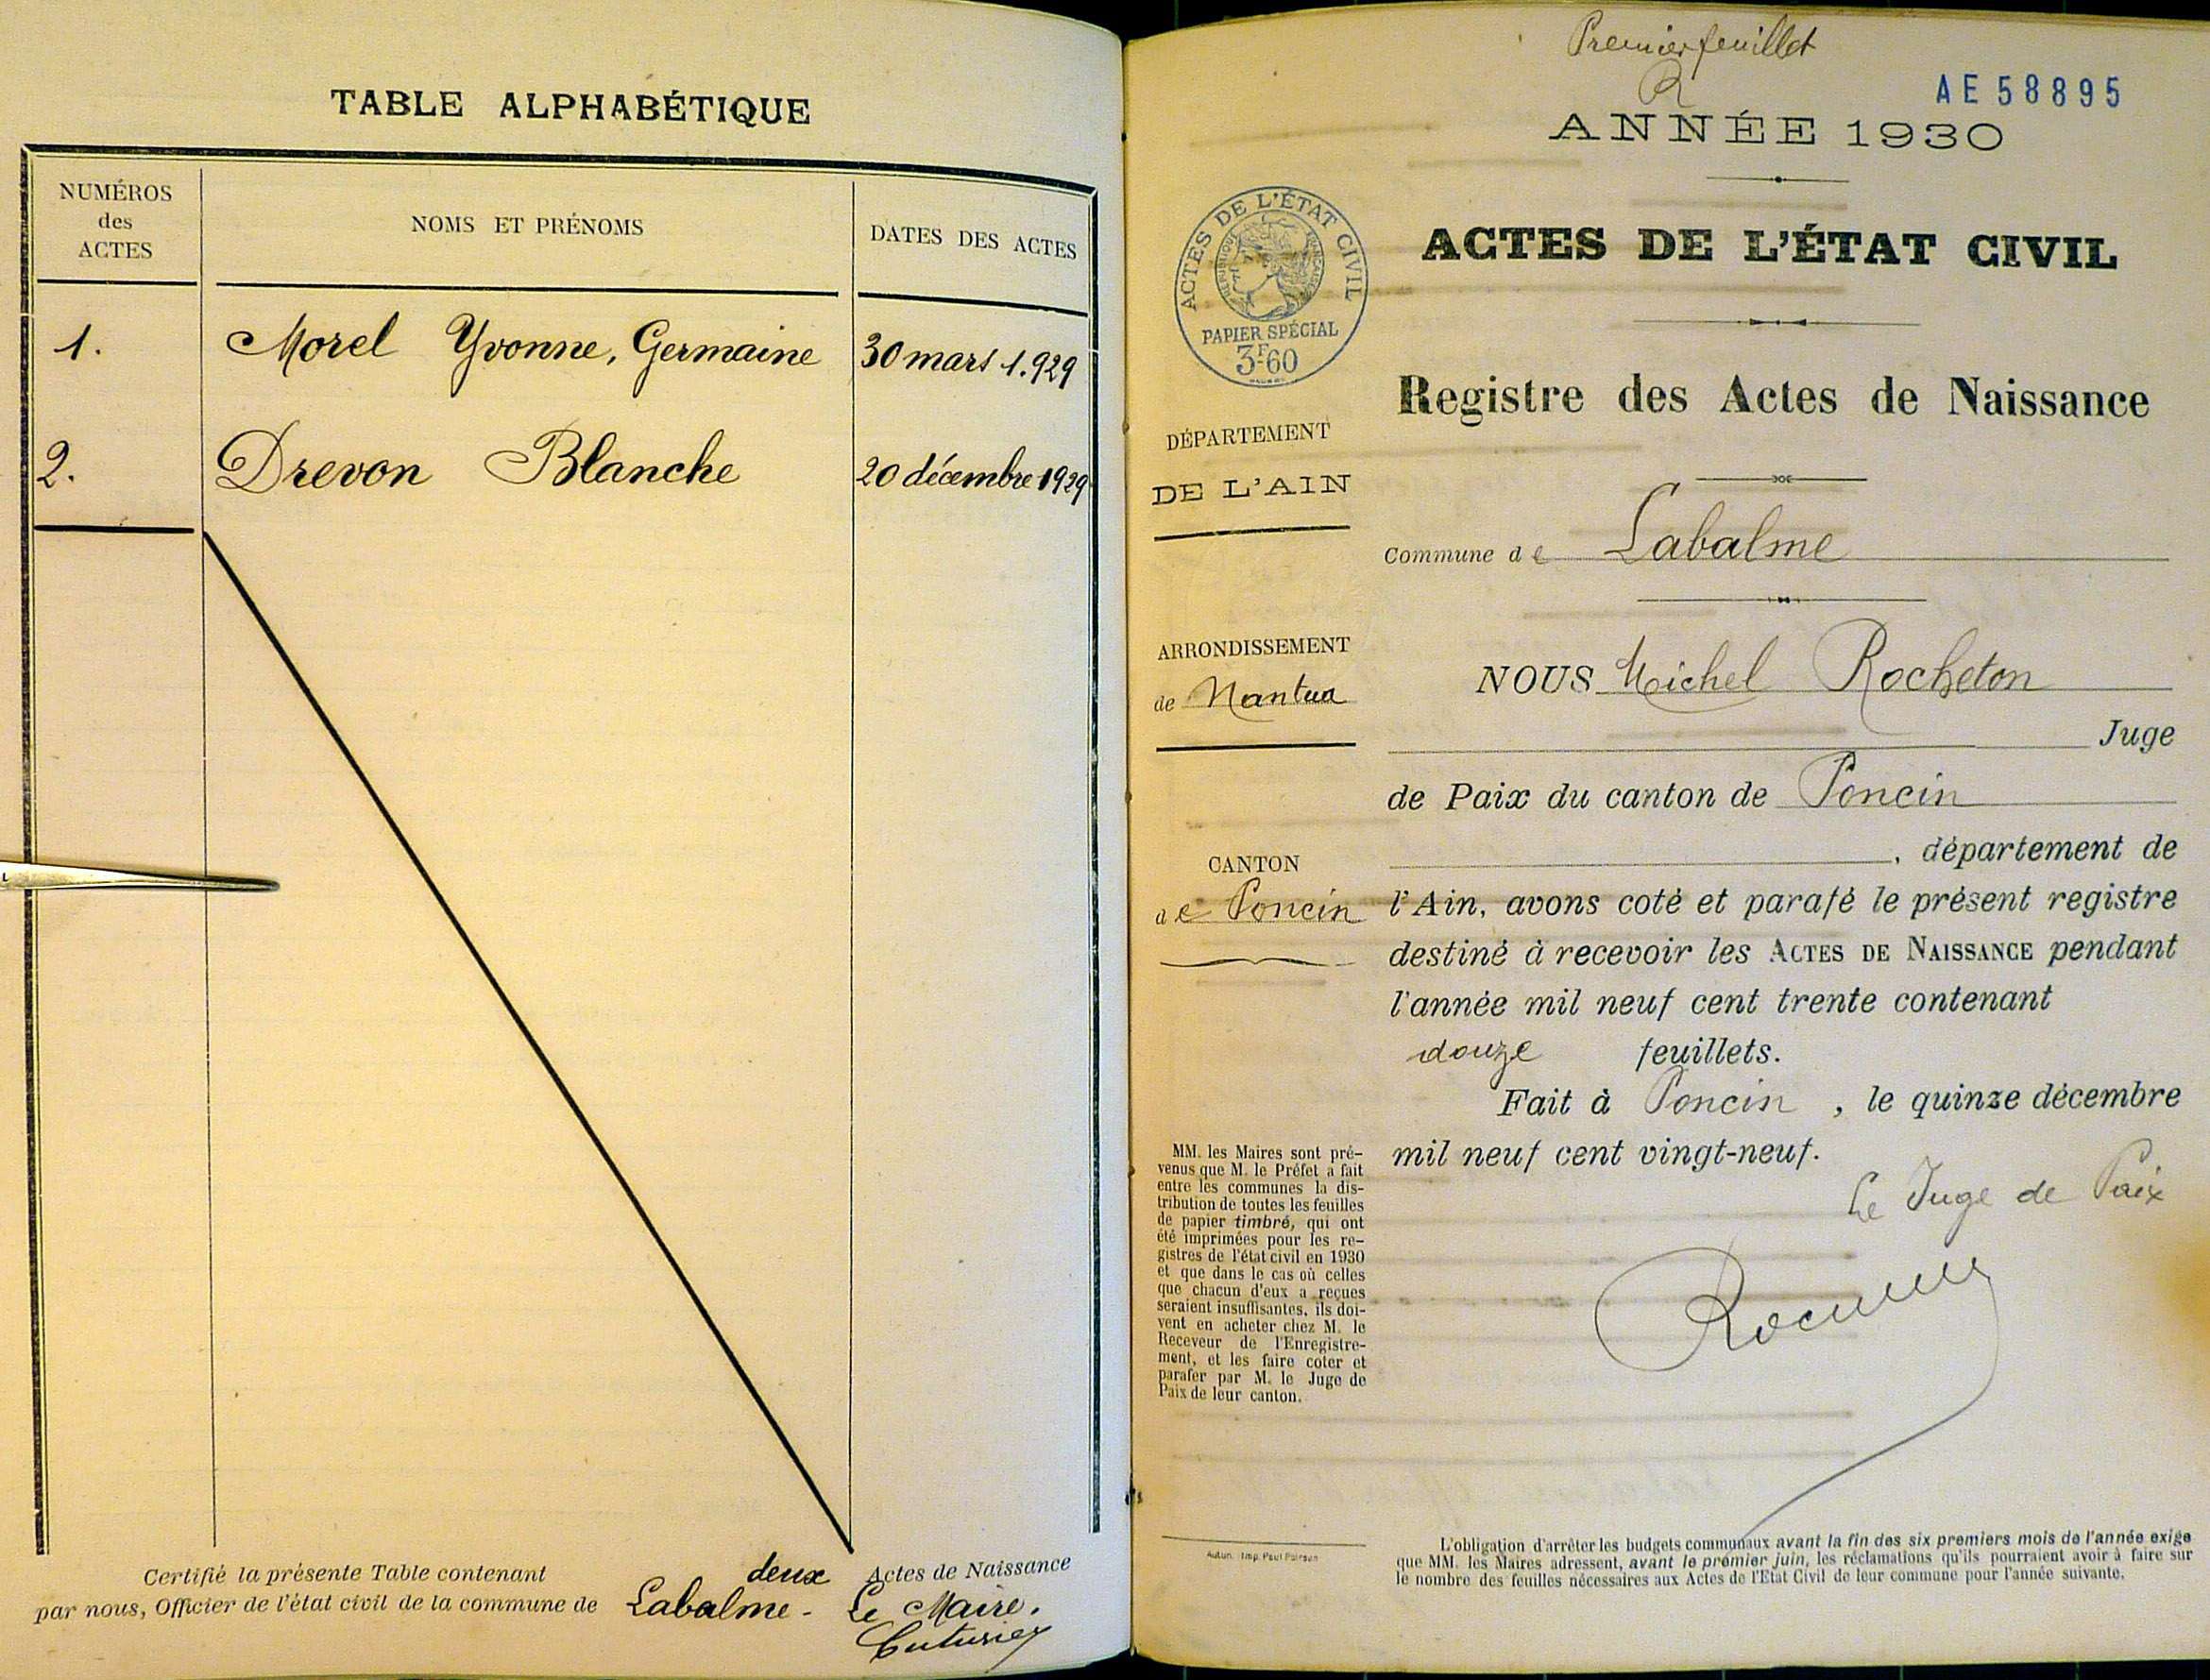 TABLE ALPHABÉTIQUE
NUMÉROS
des
ACTES
NOMS ET PRÉNOMS
DATES DES ACTES
1. Morel Yvonne, Germaine 30 mars 1.929
2. Drevon Blanche 20 décembre 1929
Certifié la présente Table contenant deux Actes de Naissance
par nous, Officier de l'état civil de la commune de Labalme - Le Maire.
Premier feuillet
R
AE 58895
ANNÉE 1930
ACTES DE L'ÉTAT CIVIL
ACTES DE L'ÉTAT CIVIL
RÉPUBLIQUE FRANÇAISE
PAPIER SPÉCIAL
3F60
Registre des Actes de Naissance
DÉPARTEMENT
DE L'AIN
Commune de Labalme
ARRONDISSEMENT
de Nantua
NOUS Michel Rocheton
Juge
de Paix du canton de Poncin
, département de
CANTON
de Poncin
l'Ain, avons coté et parafé le présent registre
destiné à recevoir les ACTES DE NAISSANCE pendant
l'année mil neuf cent trente contenant
douze feuillets.
Fait à Poncin , le quinze décembre
mil neuf cent vingt-neuf.
Le Juge de Paix
MM. les Maires sont pré-
venus que M. le Préfet a fait
entre les communes la dis-
tribution de toutes les feuilles
de papier timbré, qui ont
été imprimées pour les re-
gistres de l'état civil en 1930
et que dans le cas où celles
que chacun d'eux a reçues
seraient insuffisantes, ils doi-
vent en acheter chez M. le
Receveur de l'Enregistre-
ment, et les faire coter et
parafer par M. le Juge de
Paix de leur canton.
Autun. Imp. Paul
L'obligation d'arrêter les budgets communaux avant la fin des six premiers mois de l'année exige
que MM. les Maires adressent, avant le premier juin, les réclamations qu'ils pourraient avoir à faire sur
le nombre des feuilles nécessaires aux Actes de l'Etat Civil de leur commune pour l'année suivante.